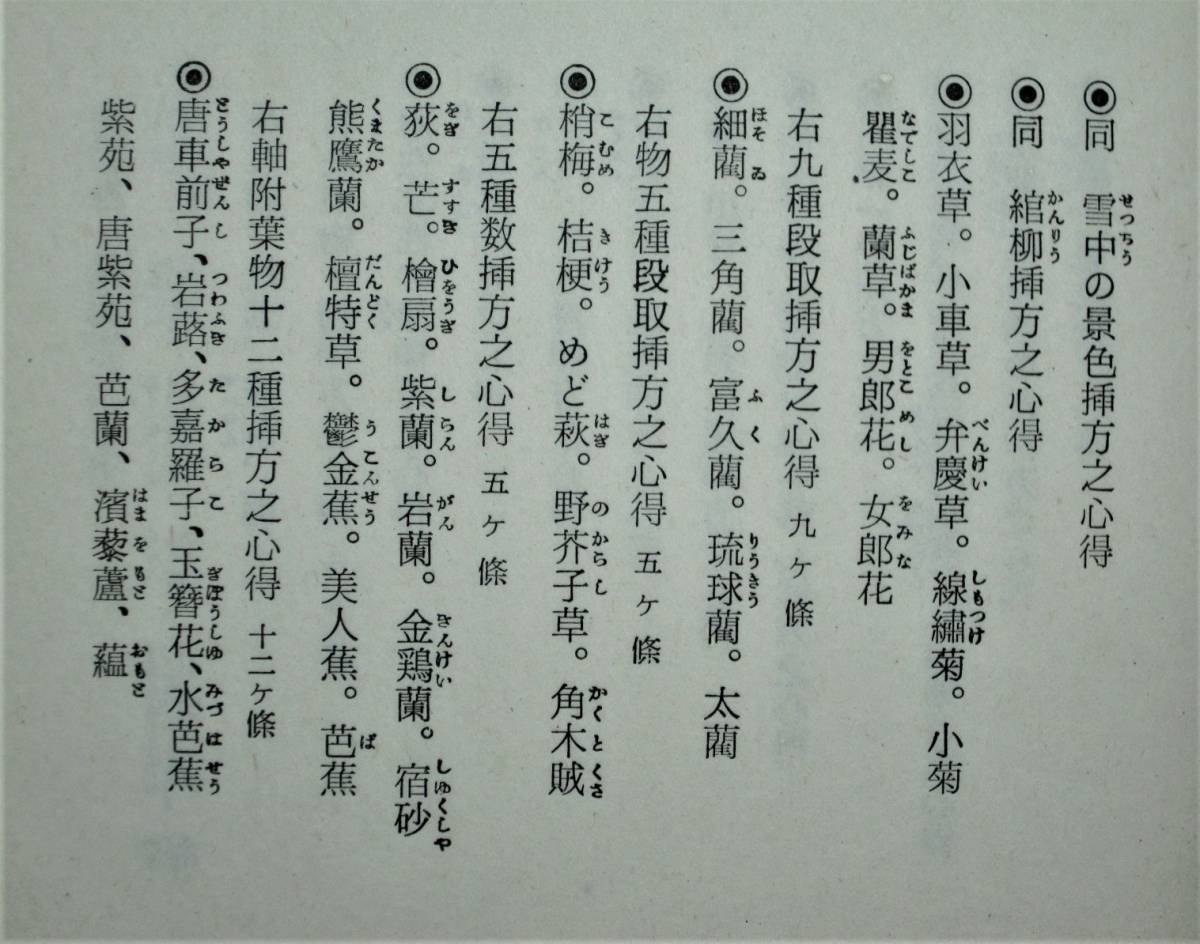 ◉同　雪中の景色挿方之心得
◉同　綰柳挿方之心得
◉羽衣草。小車草。弁慶草。線繡菊。小菊
瞿麦。蘭草。男郎花。女郎花
右九種段取挿方之心得　九ヶ條
◉細藺。三角藺。富久藺。琉球藺。太藺
右物五種段取挿方之心得　五ヶ條
◉梢梅。桔梗。めど萩。野芥子草。角木賊
右五種数挿方之心得　五ヶ條
◉荻。芒。檜扇。紫蘭。岩蘭。金鶏蘭。宿砂
熊鷹蘭。檀特草。鬱金蕉。美人蕉。芭蕉
右軸附葉物十二種挿方之心得　十二ヶ條
◉唐車前子、岩蕗、多嘉羅子、玉簪花、水芭蕉
紫苑、唐紫苑、芭蘭、濱藜蘆、蘊